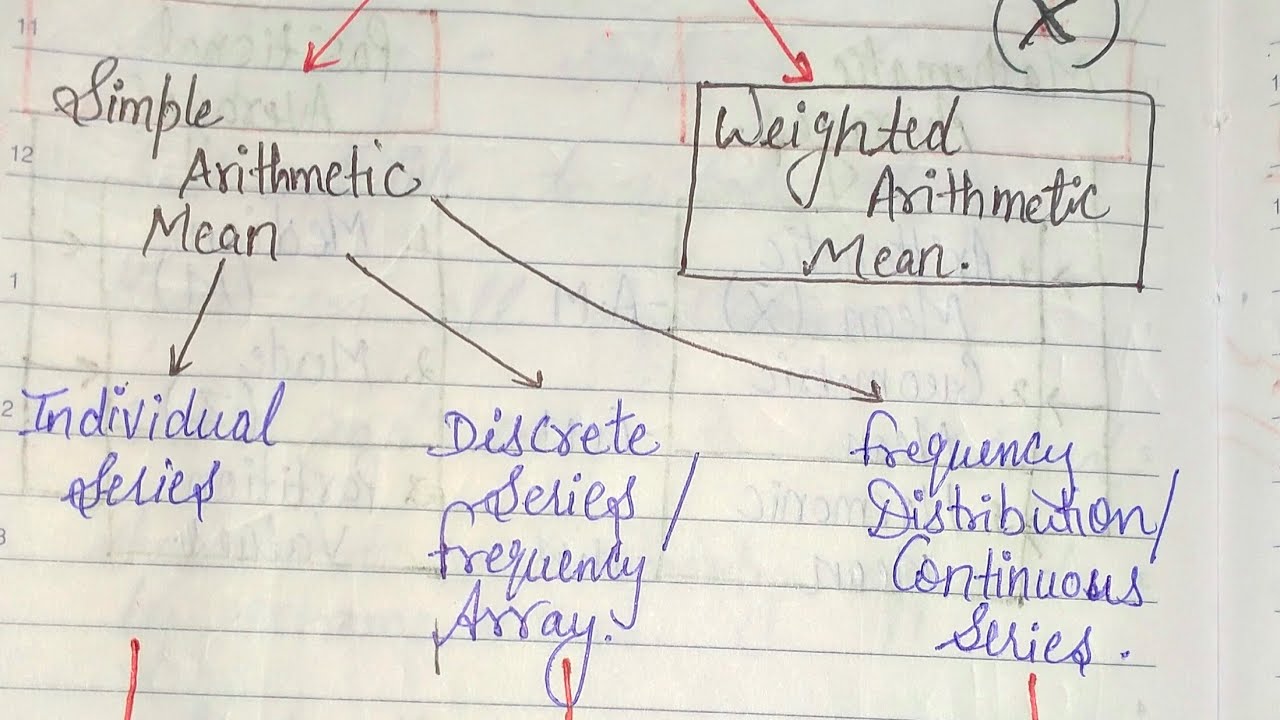 11
12
1
2
3
X
Simple
Arithmetic
Mean
Weighted
Arithmetic
Mean.
Individual
Series
Discrete
Series /
frequency
Array.
frequency
Distribution/
Continuous
Series.